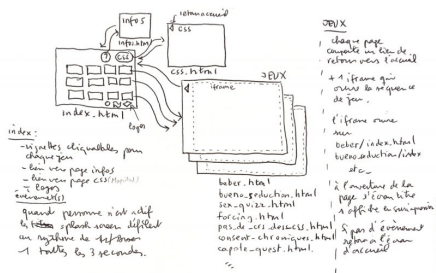 infos
infos.html
?
CSS
retour accueil
CSS
css.html
JEUX
iframe
logos
index.html
index :
- vignettes cliquables pour
chaque jeu
- lien vers page infos
- lien vers page CSS
- logos
événement(s)
quand personne n'est actif
les splash screen défilent
au rythme de
1 toutes les 3 secondes.
beber.html
bueno_seduction.html
sex_quizz.html
forcing.html
pas_de_crs_des_css.html
consent-chroniques.html
capote-quest.html
etc.
JEUX
chaque page
comporte un lien de
retour vers l'accueil
+ 1 iframe qui
ouvre la séquence
de jeu.
l'iframe ouvre
sur
beber/index.html
bueno_seduction/index
etc
à l'ouverture de la
page l'écran titre
s'affiche
Si pas d'événement
retour à l'écran
d'accueil